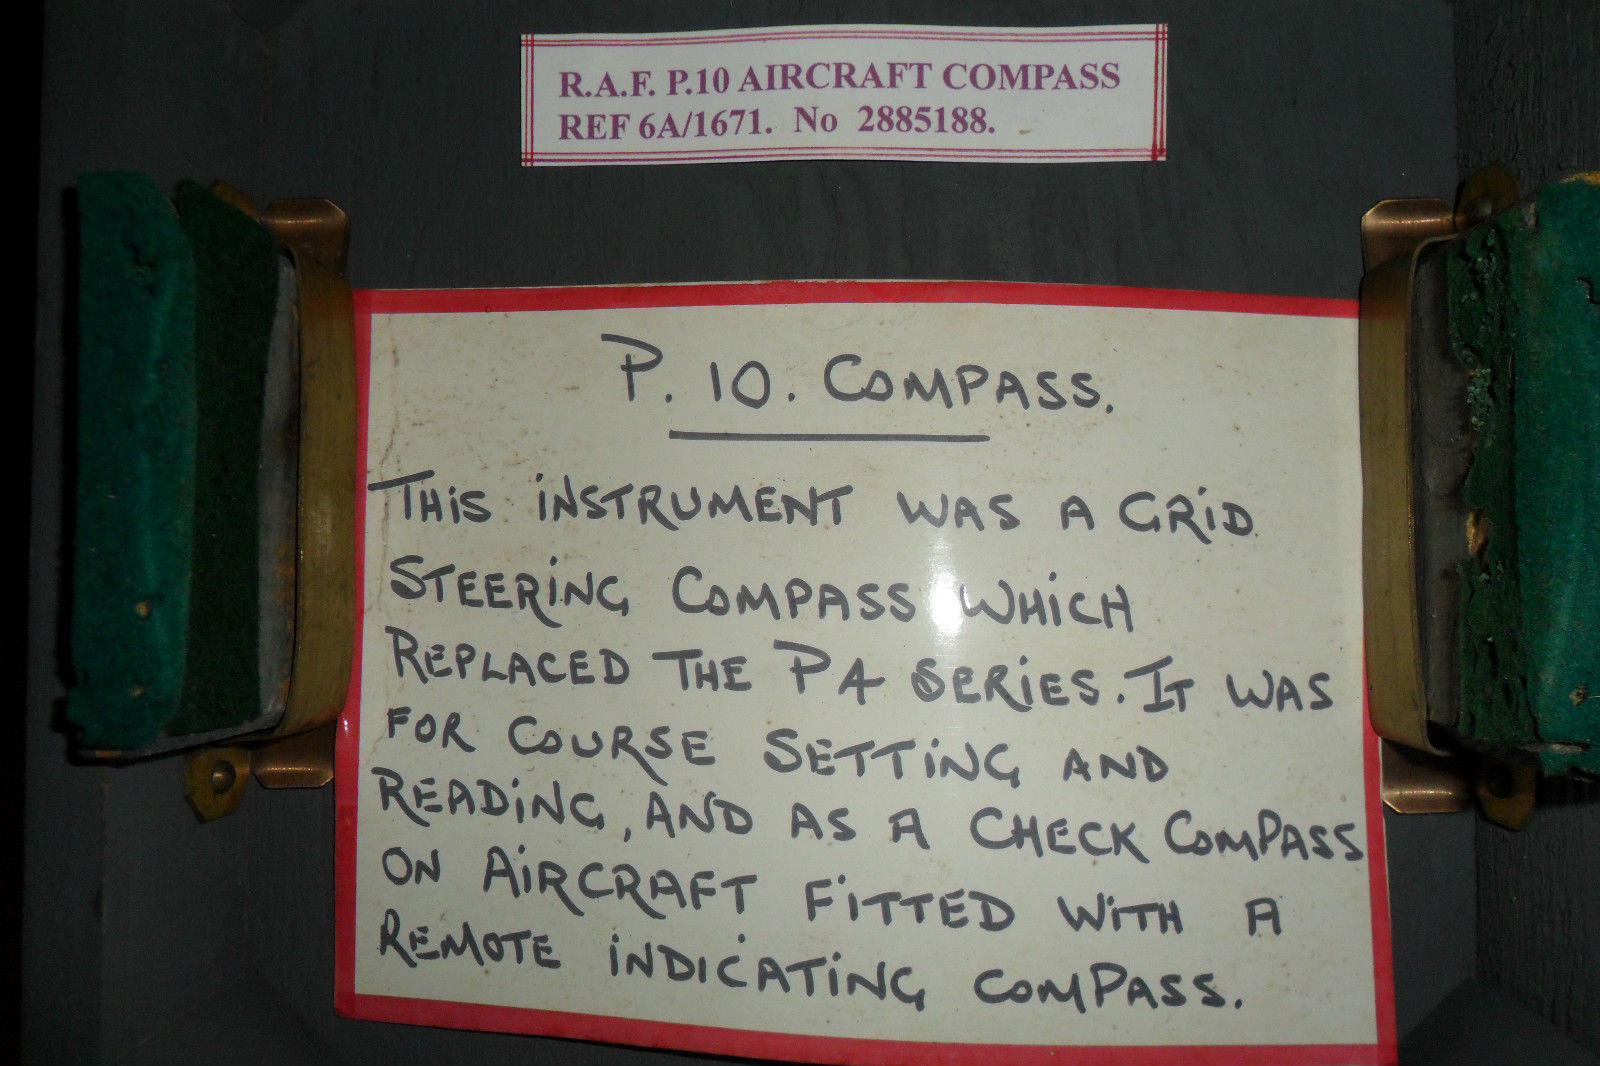 R.A.F. P.10 AIRCRAFT COMPASS
REF 6A/1671. No 2885188.
P. 10. COMPASS.
THIS INSTRUMENT WAS A GRID
STEERING COMPASS WHICH
REPLACED THE P4 SERIES. IT WAS
FOR COURSE SETTING AND
READING, AND AS A CHECK COMPASS
ON AIRCRAFT FITTED WITH A
REMOTE INDICATING COMPASS.